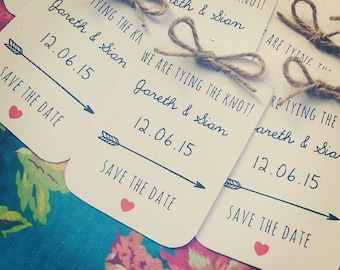 WE ARE TYING THE KNOT!
Jareth & Sian
12.06.15
SAVE THE DATE
WE ARE TYING THE KNOT!
Jareth & Sian
12.06.15
SAVE THE DATE
TYING THE KNOT!
Jareth & Sian
12.06.15
SAVE THE DATE